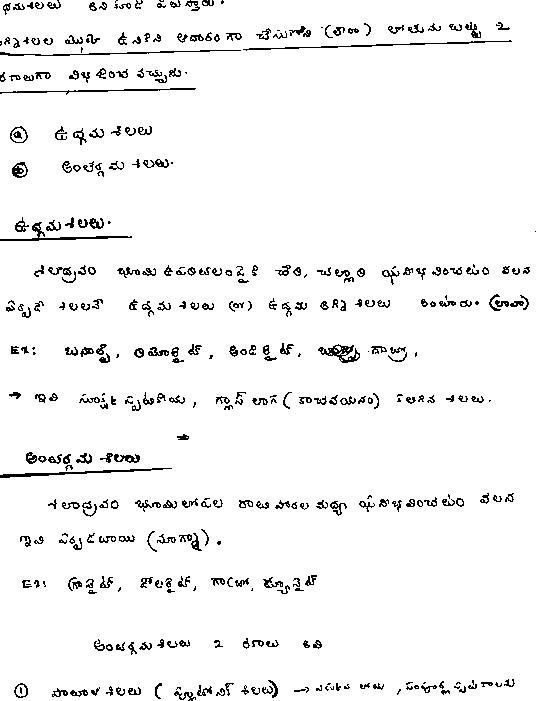 అగ్ని శిలల మొక్క ఉనికిని ఆధారంగా చేసుకొని (లేదా) లోతును బట్టి 2
రకాలుగా విభజించ వచ్చును.
ⓐ ఉద్గమ శిలలు
ⓑ అంతర్గమ శిలలు.
ఉద్గమ శిలలు.
శిలాద్రవం భూమి ఉపరితలంపైకి చేరి, చల్లారి ఘనీభవించటం వలన
ఏర్పడే శిలలనే ఉద్గమ శిలలు (or) ఉద్గమ అగ్ని శిలలు అంటారు. (లావా)
Ex: బసాల్ట్, రియోలైట్, ఆండెసైట్,
→ ఇవి సూక్ష్మ స్పటికీయ, గ్లాస్ లాగ (గాజువయనం) కలిగిన శిలలు.
అంతర్గమ శిలలు
శిలాద్రవం భూమిలోపల రాతి పొరల మధ్య ఘనీభవించటం వలన
ఇవి ఏర్పడతాయి (మాగ్మా).
Ex: గ్రానైట్, డోలరైట్, గాబ్రో,
అంతర్గమ శిలలు 2 రకాలు అవి
① పాతాళ శిలలు ( ప్లూటోనిక్ శిలలు) →